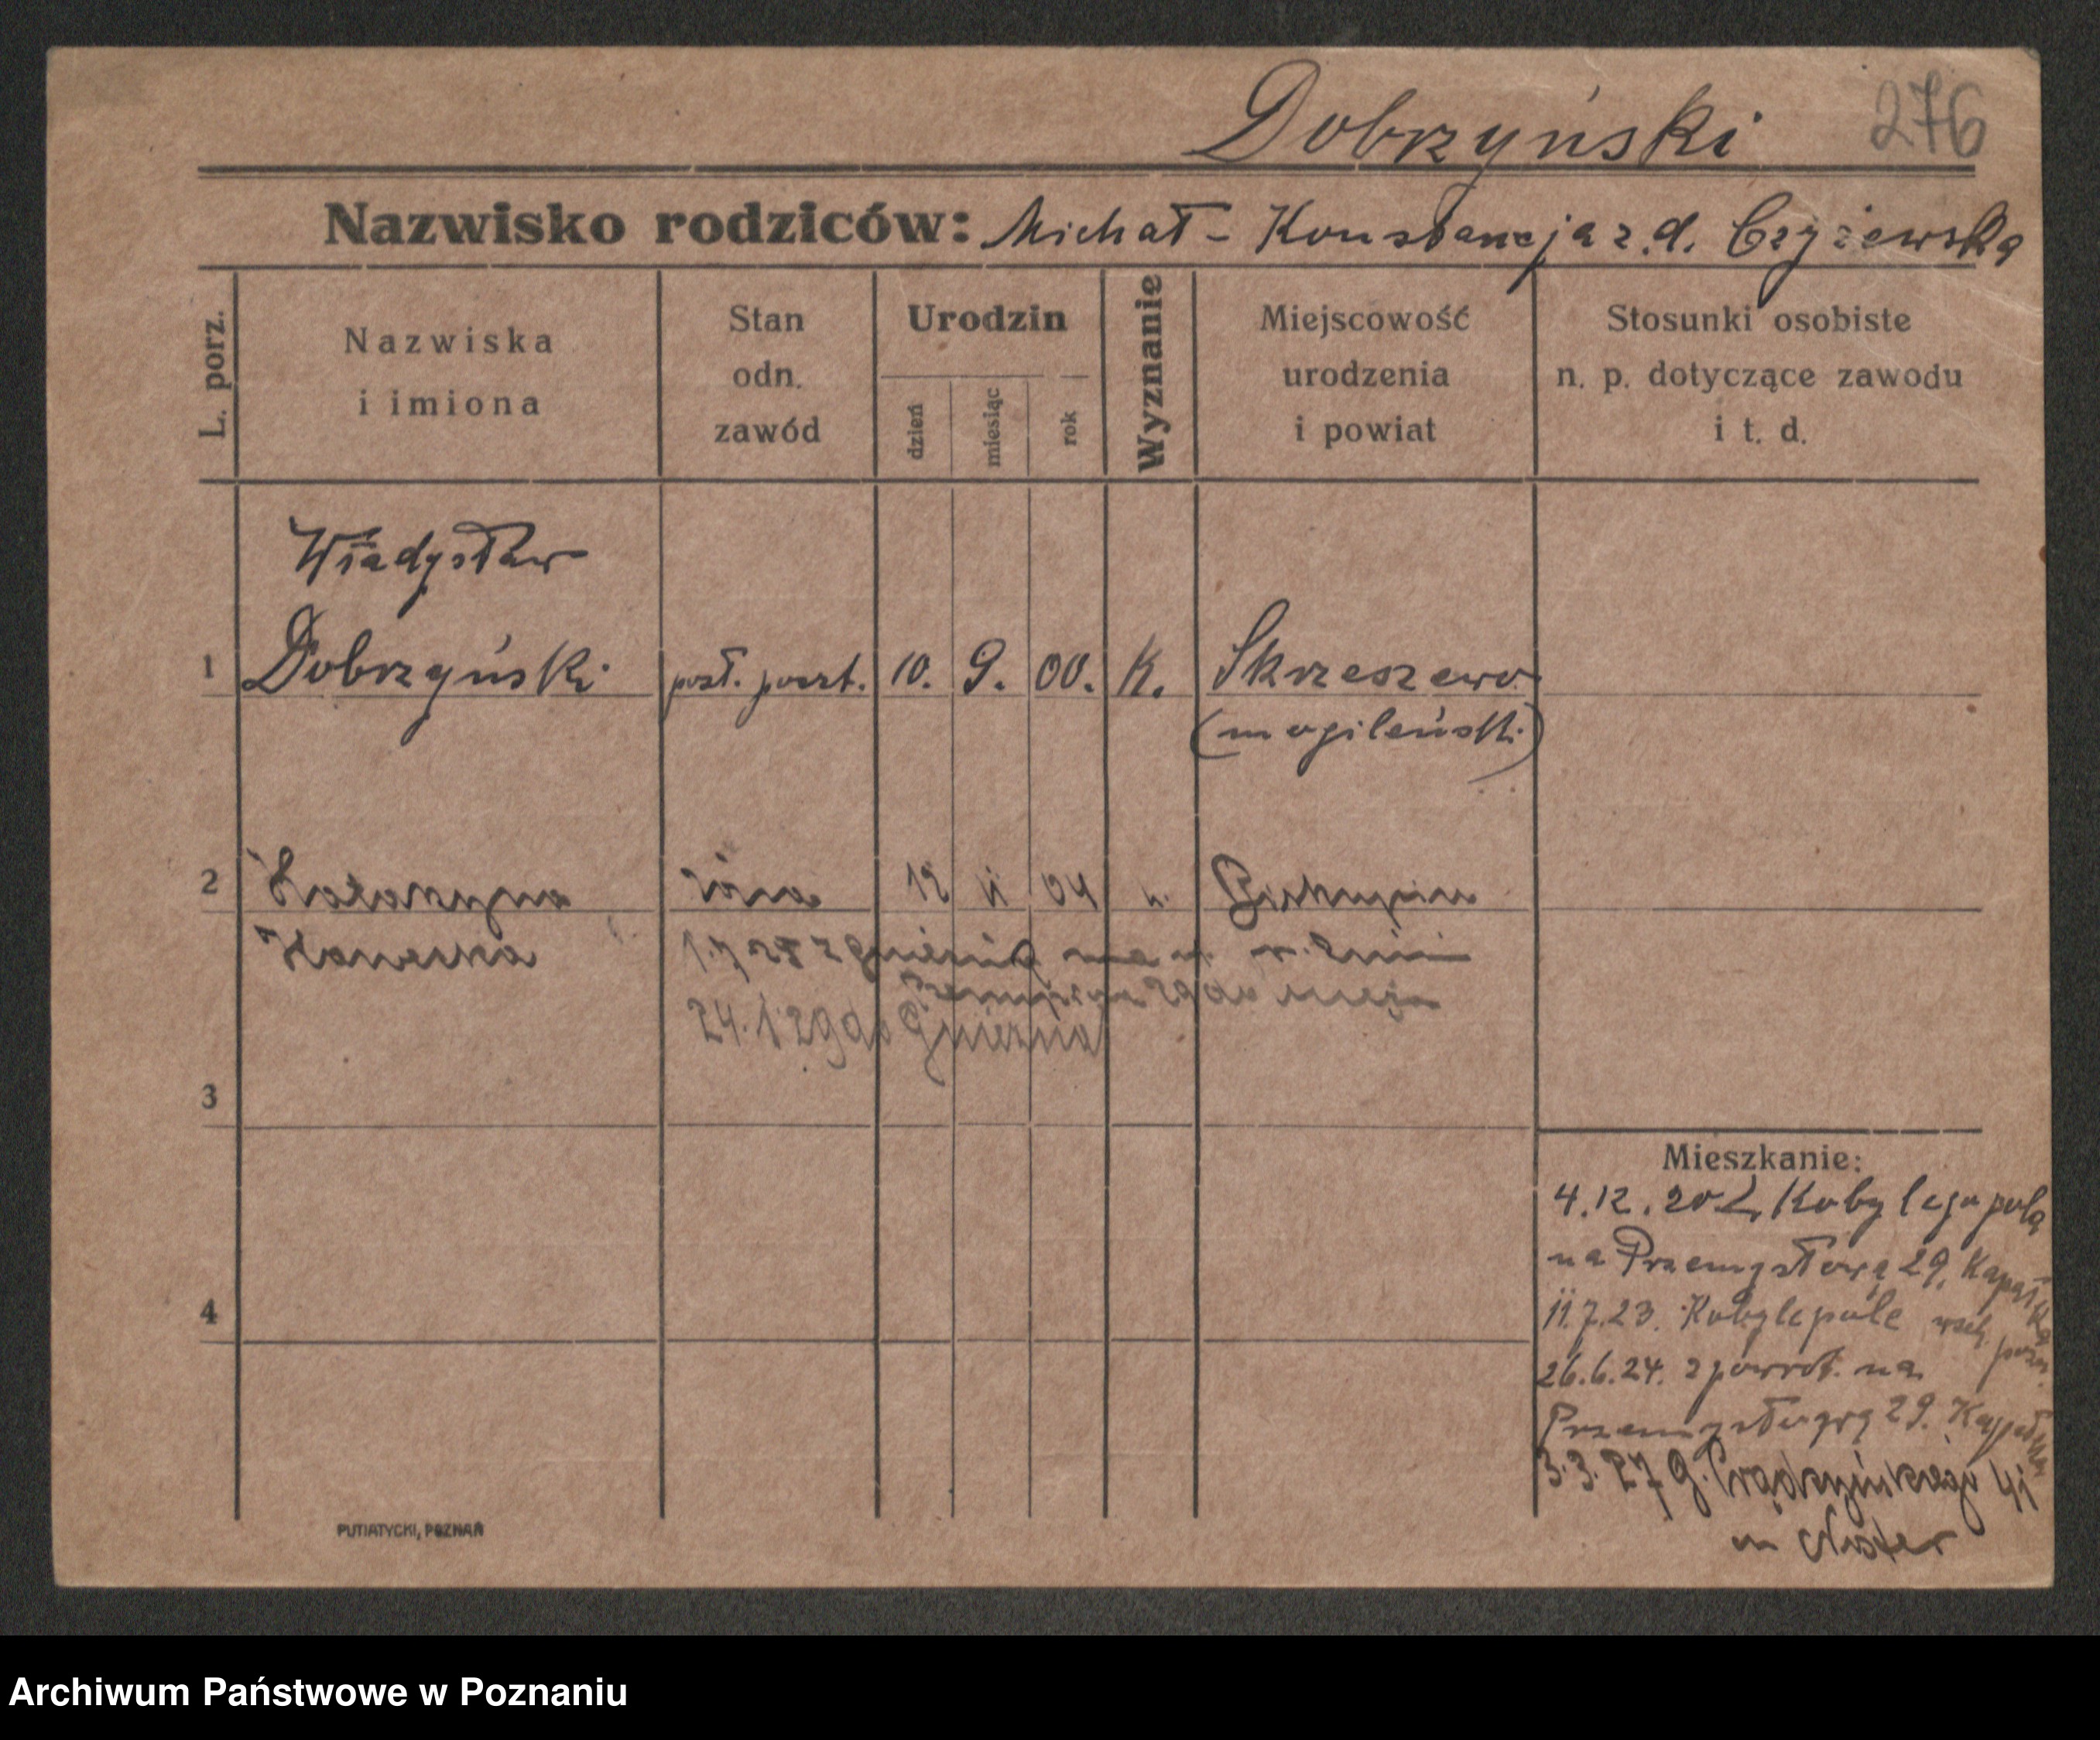 Dobrzyński 276
Nazwisko rodziców: Michał - Konstancja z.d. Czyżewska
L. porz.
Nazwiska
i imiona
Stan
odn.
zawód
Urodzin
dzień
miesiąc
rok
Wyznanie
Miejscowość
urodzenia
i powiat
Stosunki osobiste
n. p. dotyczące zawodu
i t. d.
Władysław
1 Dobrzyński posł. poczt. 10. 9. 00. K. Skrzeszewo
(mogileński)
2 Katarzyna żona 12 04 k. Biskupin
24.1.29 do Gniezna
3
4
Mieszkanie:
4.12.20 Z Kobylegopola
na Przemysłową 29, Kapałka
11.7.23. Kobylepole wsch. pozn.
26.6.24. zpowrot. na
Przemysłową 29. Kapałka
3.3.27 G. Prądzyńskiego 41
PUTIATYCKI, POZNAŃ
Archiwum Państwowe w Poznaniu